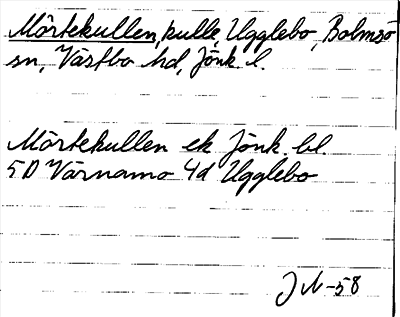 Mörtekullen, kulle, Ugglebo, Bolmsö
sn, Västbo hd, Jönk. l.
Mörtekullen ek Jönk. bl.
5D Värnamo 4d Ugglebo
JN-58